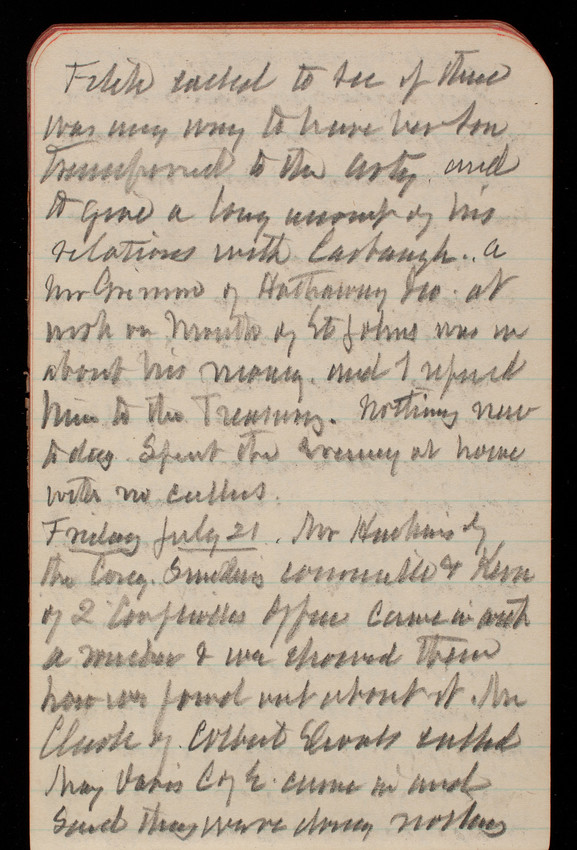 Fitch called to see if there
was any way to have her son
Transferred to the arty. and
to give a long account of his
relations with Carbaugh.. a
Mr Grimm of Hathaway &co. at
work on Mouth of St Johns was in
about his money. and I refered
him to the Treasury. Nothing new
today. Spent the evening at home
with no callers.
Friday July 21. Mr Huchins of
the Cong. committee & Kern
of 2 Comptrollers Office came in with
a number & we showed them
how we found out about it. Mr
Clark of Colbert Shoals called
Maj Davis C of E. came in and
Said they were doing nothing